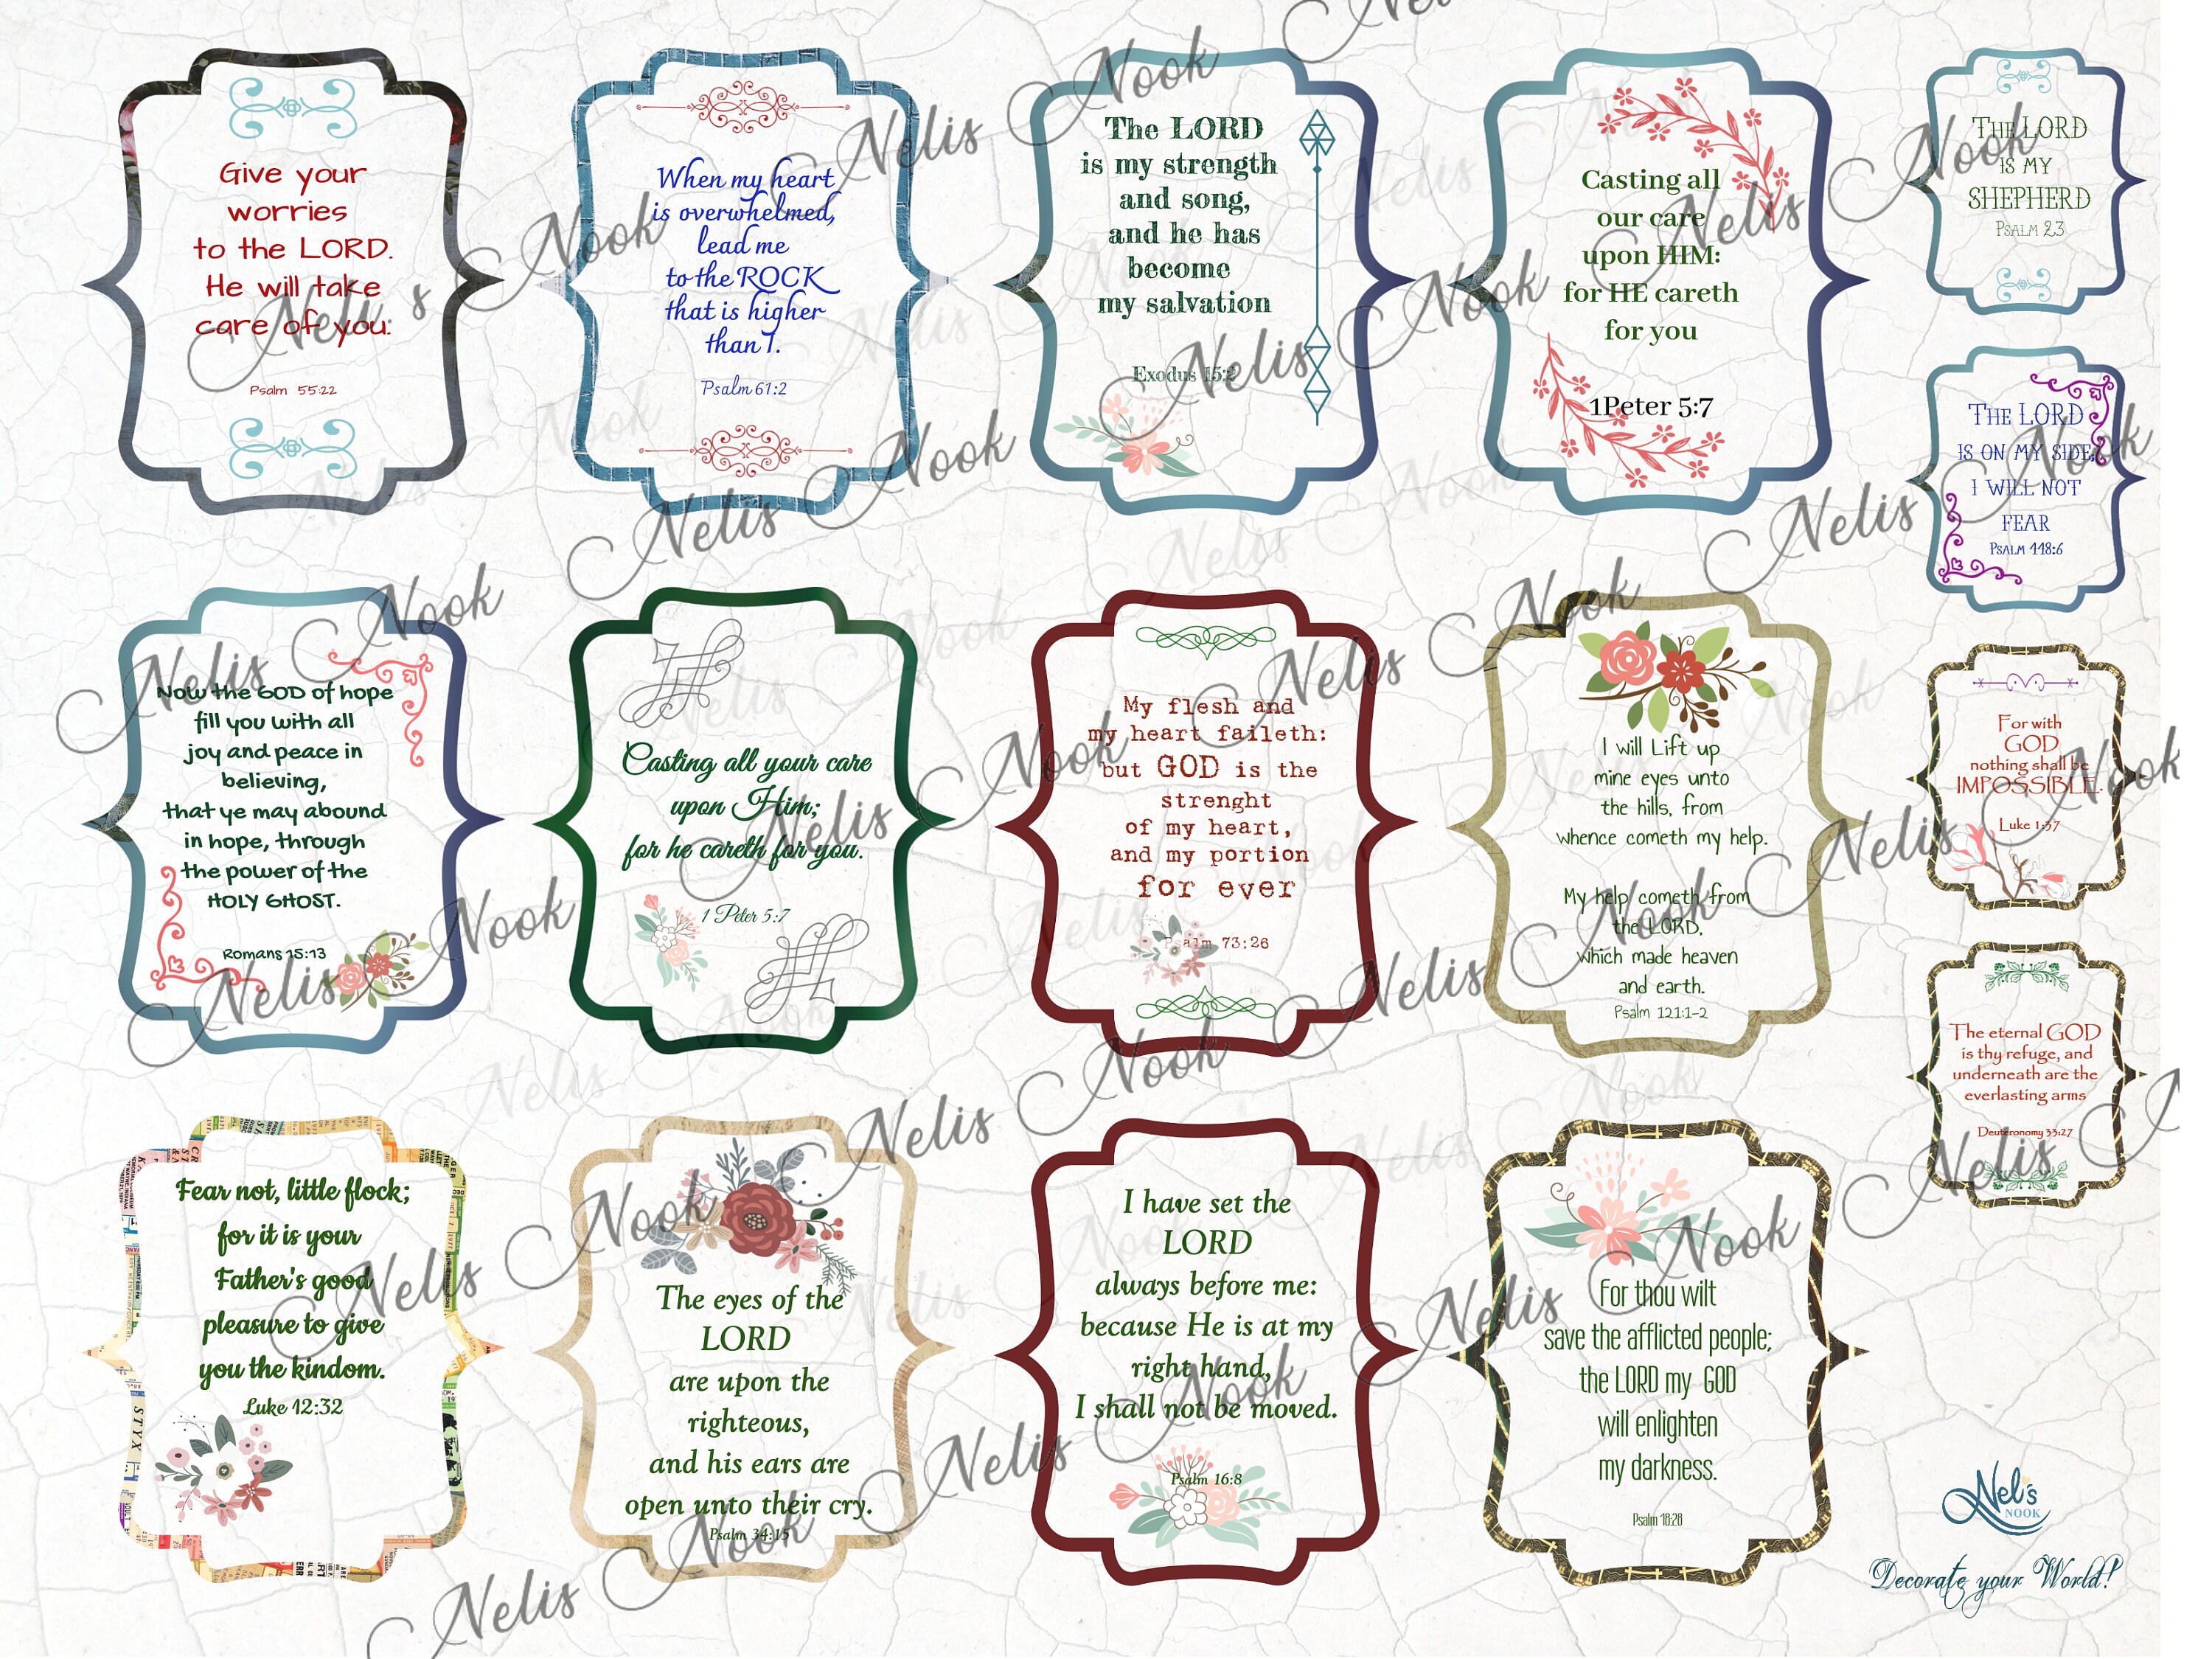 Give your
worries
to the LORD.
He will take
care of you.
Psalm 55:22
When my heart
is overwhelmed,
lead me
to the ROCK
that is higher
than I.
Psalm 61:2
The LORD
is my strength
and song,
and he has
become
my salvation
Exodus 15:2
Casting all
our care
upon HIM:
for HE careth
for you
1Peter 5:7
THE LORD
IS MY
SHEPHERD
PSALM 23
THE LORD
IS ON MY SIDE;
I WILL NOT
FEAR
PSALM 118:6
Now the GOD of hope
fill you with all
joy and peace in
believing,
that ye may abound
in hope, through
the power of the
HOLY GHOST.
Romans 15:13
Casting all your care
upon Him;
for he careth for you.
1 Peter 5:7
My flesh and
my heart faileth:
but GOD is the
strenght
of my heart,
and my portion
for ever
Psalm 73:26
I will Lift up
mine eyes unto
the hills, from
whence cometh my help.
My help cometh from
the LORD,
which made heaven
and earth.
Psalm 121:1-2
For with
GOD
nothing shall be
IMPOSSIBLE.
Luke 1:37
The eternal GOD
is thy refuge, and
underneath are the
everlasting arms
Deuteronomy 33:27
Fear not, little flock;
for it is your
Father's good
pleasure to give
you the kindom.
Luke 12:32
The eyes of the
LORD
are upon the
righteous,
and his ears are
open unto their cry.
Psalm 34:15
I have set the
LORD
always before me:
because He is at my
right hand,
I shall not be moved.
Psalm 16:8
For thou wilt
save the afflicted people;
the LORD my GOD
will enlighten
my darkness.
Psalm 18:28
Nel's
NOOK
Decorate your World!
Nelis Nook